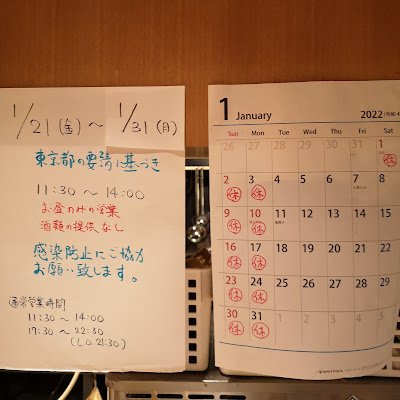 1/21(金)~1/31(月)
東京都の要請に基づき
11:30~14:00
お昼のみの営業
酒類の提供なし
感染防止にご協力
お願い致します。
通常営業時間
11:30~14:00
19:30~22:30
(L.O.21:30)
1 January 2022
Sun Mon Tue Wed Thu Fri Sat
26 27 28 29 30 31 1
休
2 3 4 5 6 7 8
休 休
9 10 11 12 13 14 15
休 休
16 17 18 19 20 21 22
休 休
23 24 25 26 27 28 29
休 休
30 31 1 2 3 4 5
休 休